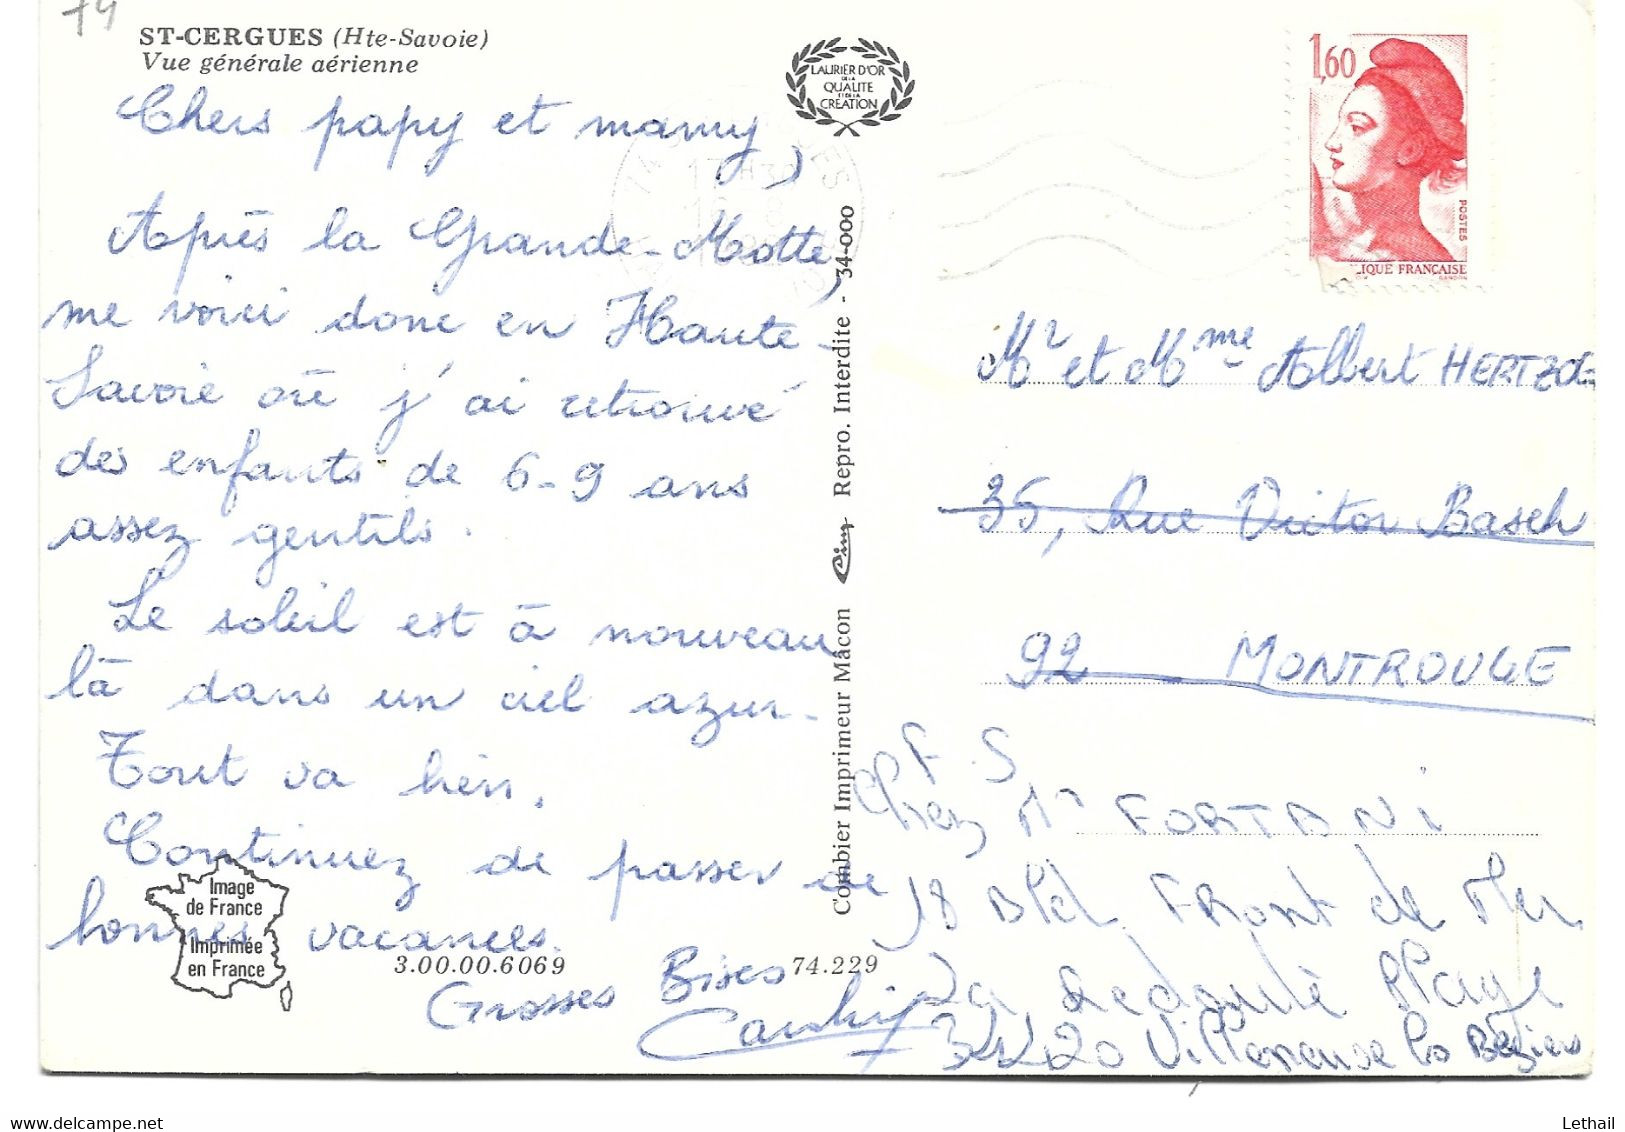 74
ST-CERGUES (Hte-Savoie)
Vue générale aérienne
LAURIER D'OR
DE LA
QUALITE
ET DE LA
CREATION
1,60
POSTES
IQUE FRANÇAISE
Chers papy et mamy,
Après la Grande-Motte,
me voici donc en Haute-
Savoie où j'ai retrouvé
des enfants de 6-9 ans
assez gentils.
Le soleil est à nouveau
là dans un ciel azur.
Tout va bien.
Continuez de passer de
bonnes vacances.
Grosses Bises
Image
de France
Imprimée
en France
3.00.00.6069
74.229
Combier Imprimeur Mâcon Cim Repro. Interdite - 34-000
Mr et Mme Albert HERTZOG
35, Rue Victor Basch
92 MONTROUGE
F.S
Chez Mr FORTANI
18 Bld FRont de Mer
La Redoute Plage
34420 Villeneuve les Béziers
Lethail